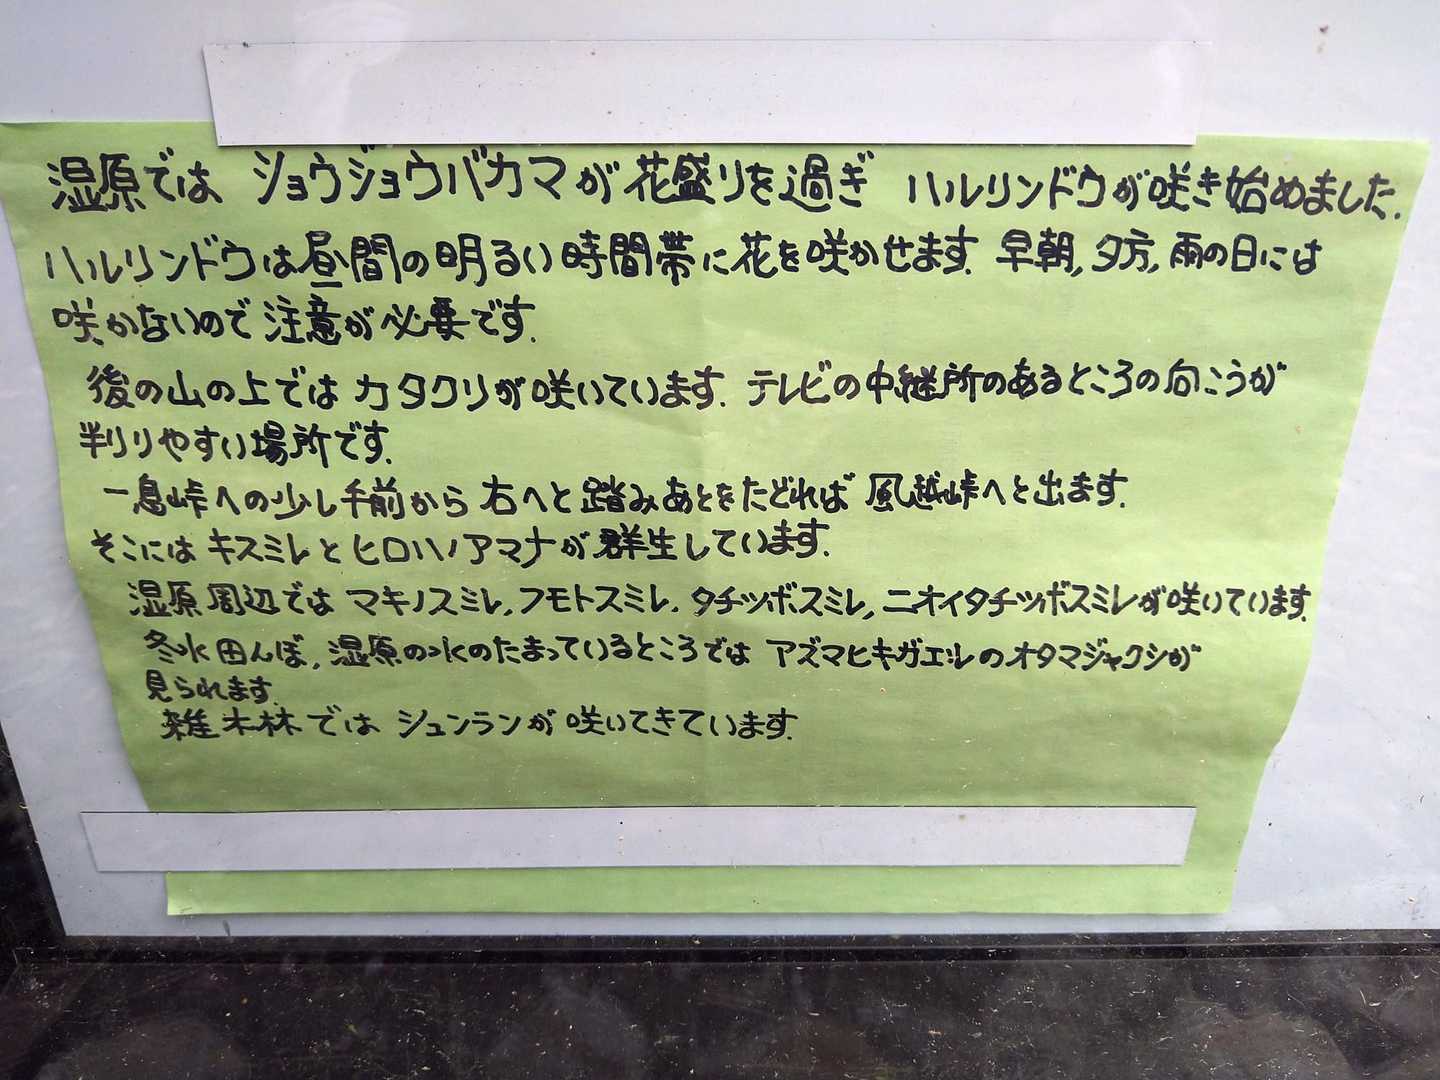 湿原では ショウジョウバカマが花盛りを過ぎ ハルリンドウが咲き始めました.
ハルリンドウは昼間の明るい時間帯に花を咲かせます. 早朝, 夕方, 雨の日には
咲かないので注意が必要です.
後の山の上では カタクリが咲いています. テレビの中継所のあるところの向こうが
判りやすい場所です.
一息峠への少し手前から 右へと踏みあとをたどれば 風越峠へと出ます.
そこには キスミレとヒロハノアマナが群生しています.
湿原周辺では マキノスミレ, フモトスミレ, タチツボスミレ, ニオイタチツボスミレが咲いています.
冬水田んぼ, 湿原の水のたまっているところでは アズマヒキガエルのオタマジャクシが
見られます.
雑木林では シュンランが咲いてきています.